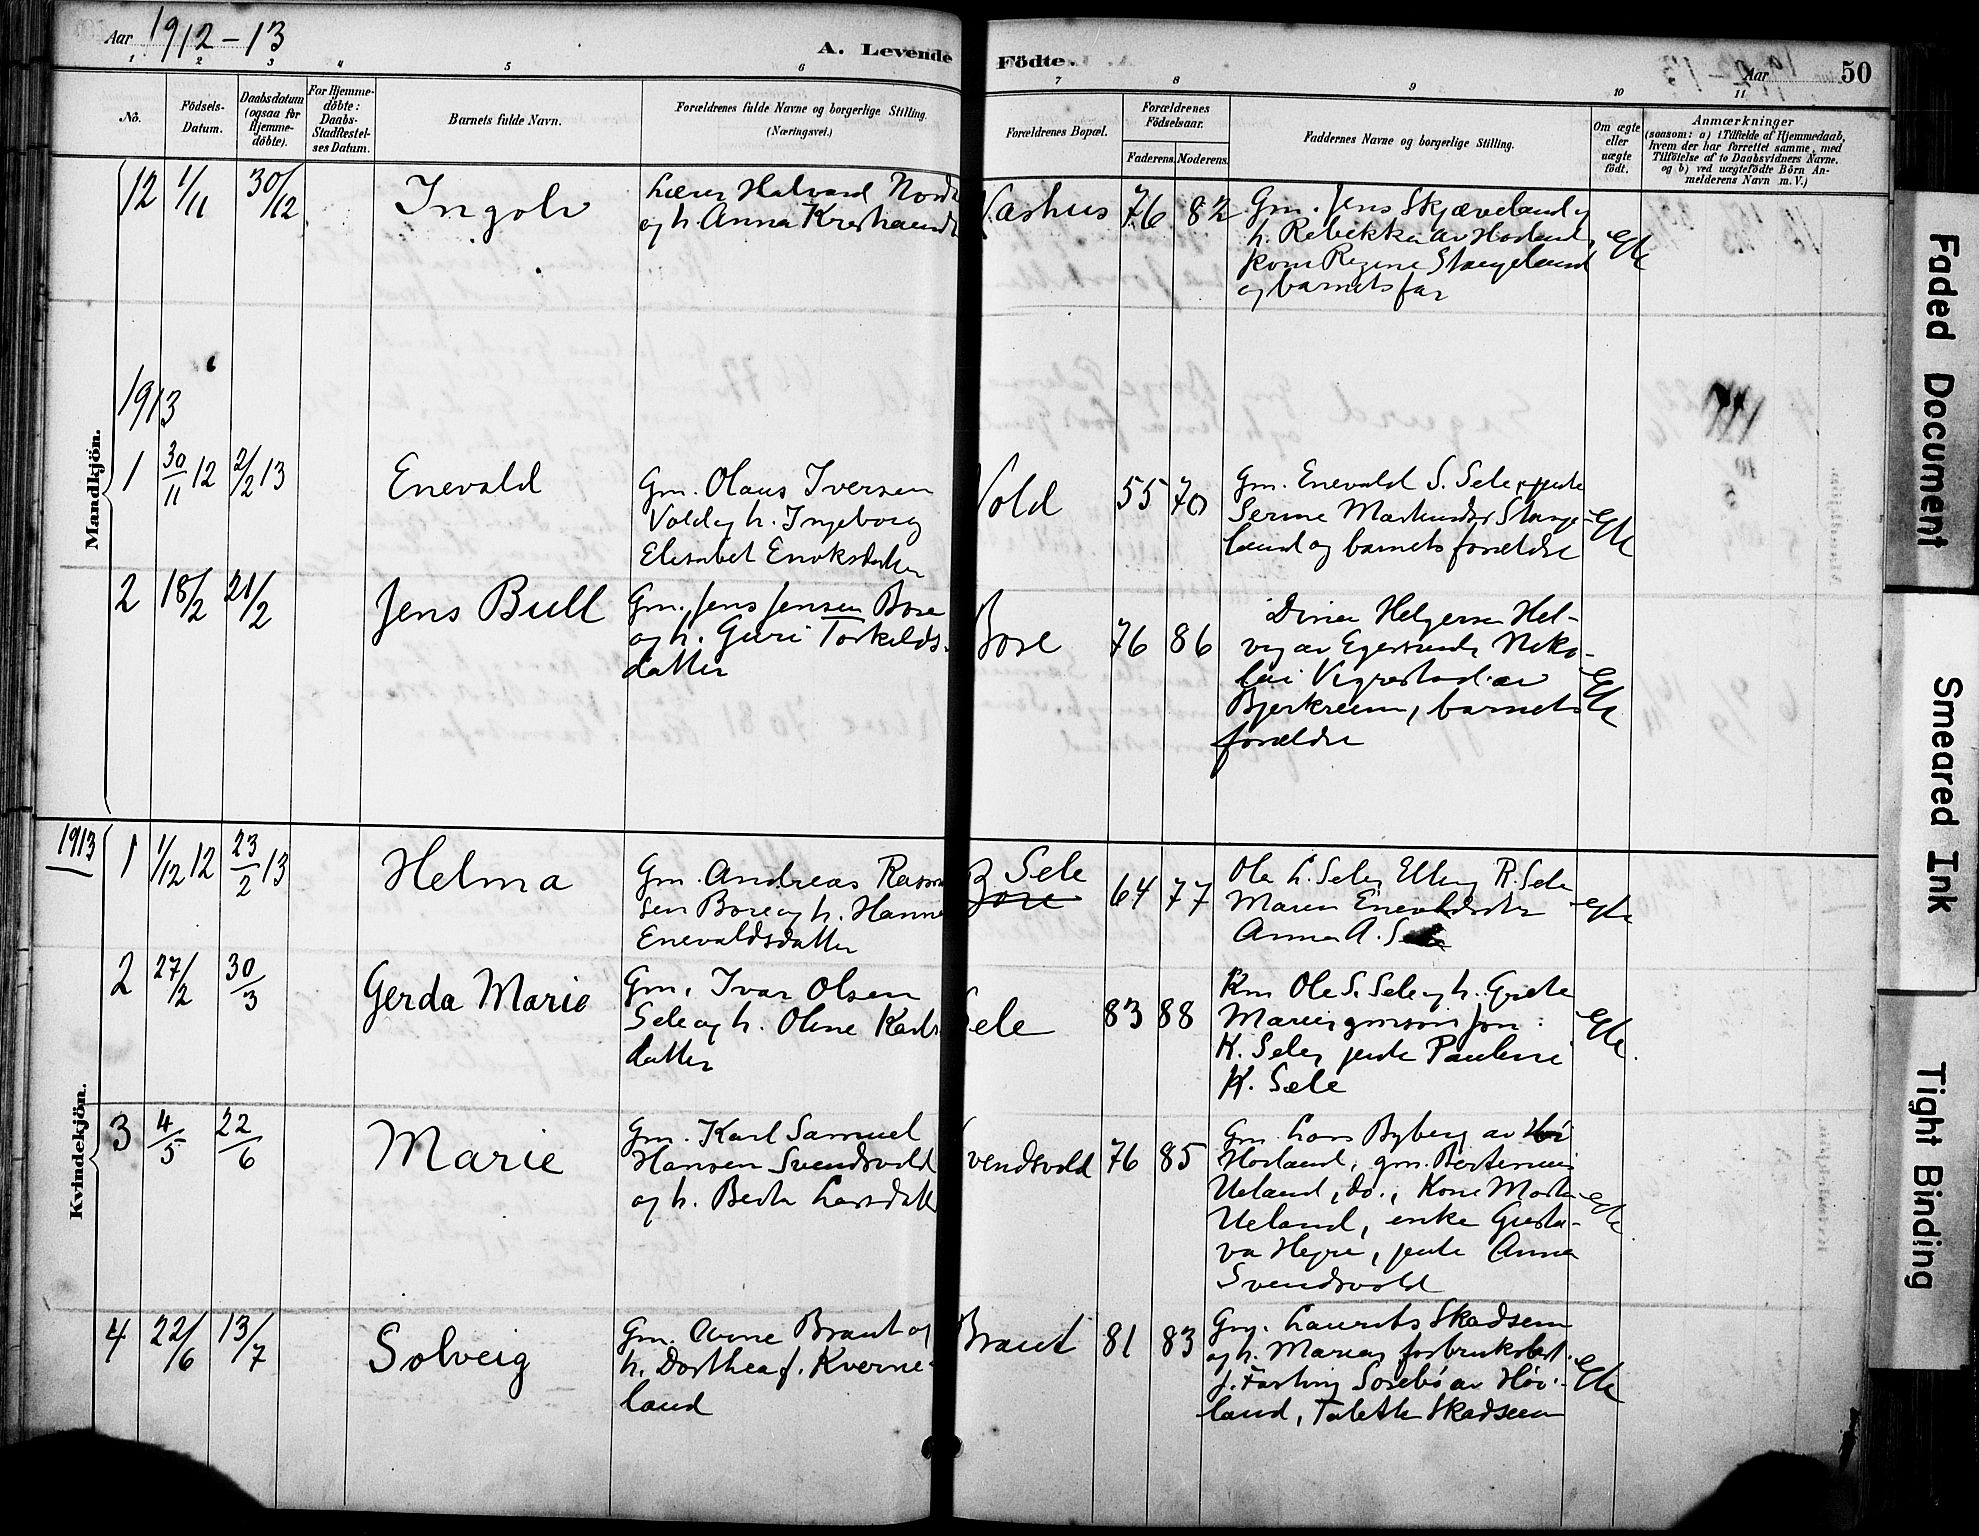 Aar 1912-13
A. Levende Födte.
Aar 50
1 2 3 4 5 6 7 8 9 10 11
No.
Födsels-Datum.
Daabsdatum (ogsaa for Hjemme-döbte).
For Hjemme-döbte: Daabs-Stadfæstel-ses Datum.
Barnets fulde Navn.
Forældrenes fulde Navne og borgerlige Stilling.
(Næringsvei.)
Forældrenes Bopæl.
Forældrenes Födselsaar.
Faderens. Moderens.
Faddernes Navne og borgerlige Stilling.
Om ægte eller uægte födt.
Anmærkninger
(saasom: a) i Tilfælde af Hjemmedaab,
hvem der har forrettet samme, med
Tilföielse af to Daabsvidners Navne.
og b) ved uægtefödte Börn An-
melderens Navn m. V.)
Mandkjön.
12 1/11 30/12 Ingolv
Lærer Halvard
og h. Anna
76 82
Gm. Jens Skjæveland og
h. Rebekka av Horland,
kone Regine Stangeland
og barnets far
egte
1913
1 30/11 12 2/2 13 Enevald
Gm. Olaus Iversen
Vold og h. Ingeborg
Elisabet Enoksdatter
Vold 55 70
Gm. Enevald S. Sele, pike
Serine Stange-
land og barnets forældre
egte
2 18/2 21/2 Jens Bull
Gm. Jens Jensen Bore
og h. Guri Torkilds-
datter
Bore 76 86
Dina Helgesen Hel-
av Egersund, Niko-
lai Vigrestad av
Bjerkreim, barnets
forældre
egte
1913
Kvindekjön.
1 1/12 12 23/2 13 Helma
Gm. Andreas
sen Bore og h. Hanne
Enevaldsdatter
Sele
Bore
64 77
Ole L. Sele, R. Sele
Maren Enevaldsdtr
Anna A. Sele
egte
2 27/2 30/3 Gerda Marie
Gm. Ivar Olsen
Sele og h. Oline Karls
datter
Sele 83 88
Km Ole S. Sele og h. Grete
Marie, gmsøn Jon
K. Sele, pike Pauline
K. Sele
egte
3 4/5 22/6 Marie
Gm. Karl Samuel
Hansen Svendsvold
og h. Berta Larsdatt
Svendsvold 76 85
Gm. Lars Byberg av
Horland, gm.
Ueland, do., Kone
Ueland, enke Gusta-
va Hegre, pike Anna
Svendsvold
egte
4 22/6 13/7 Solveig
Gm. Arne Braut og
h. Dorthea f. Kverne-
land
Braut 81 83
Gm. Laurits Skadsem
og h. Maria,
f. Sørebø av Høi-
land, Skadsem
egte
Faded Document
Smeared Ink
Tight Binding